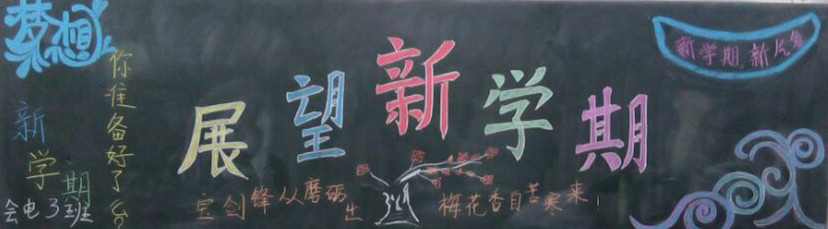 梦想
新学期
会电3班
你准备好了
展望新学期
宝剑锋从磨砺出
梅花香自苦寒来!
新学期 新气象